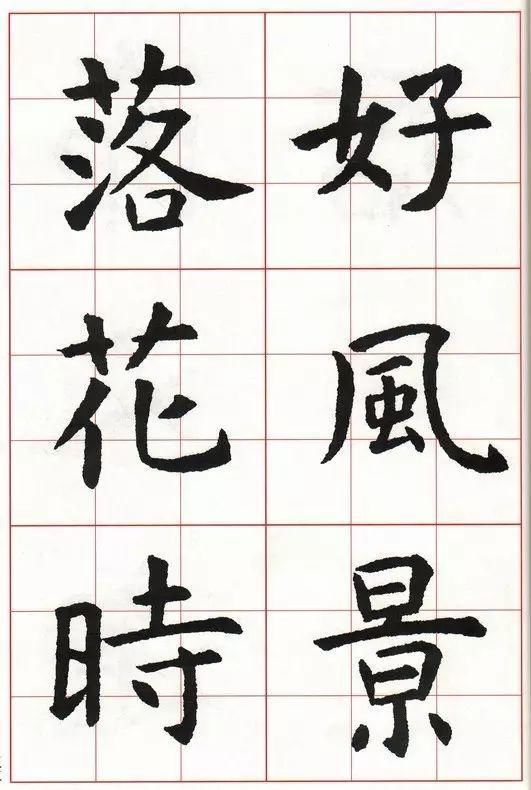 好風景
落花時